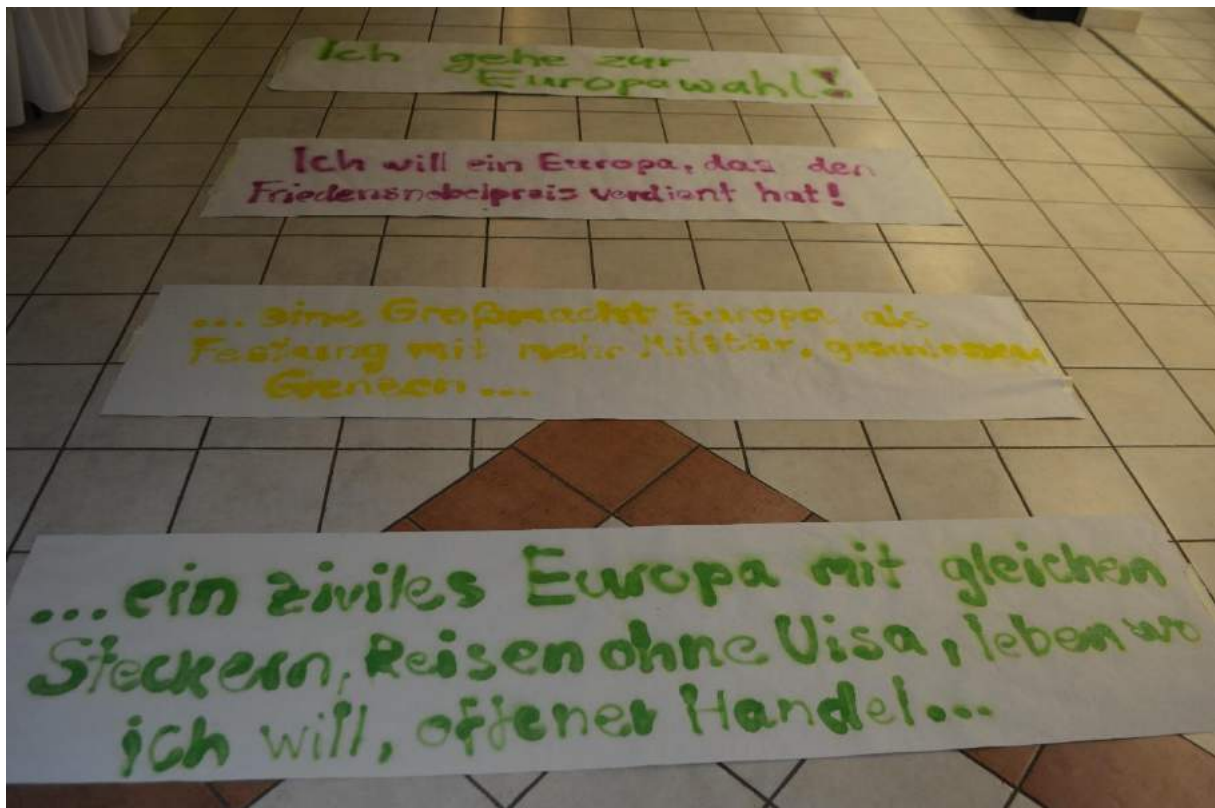 Ich gehe zur
Europawahl!
Ich will ein Europa, das den
Friedensnobelpreis verdient hat!
... eine Großmacht Europa als
Festung mit mehr Militär, geschlossenen
Grenzen ...
... ein ziviles Europa mit gleichen
Steckern, Reisen ohne Visa, leben wo
ich will, offener Handel...